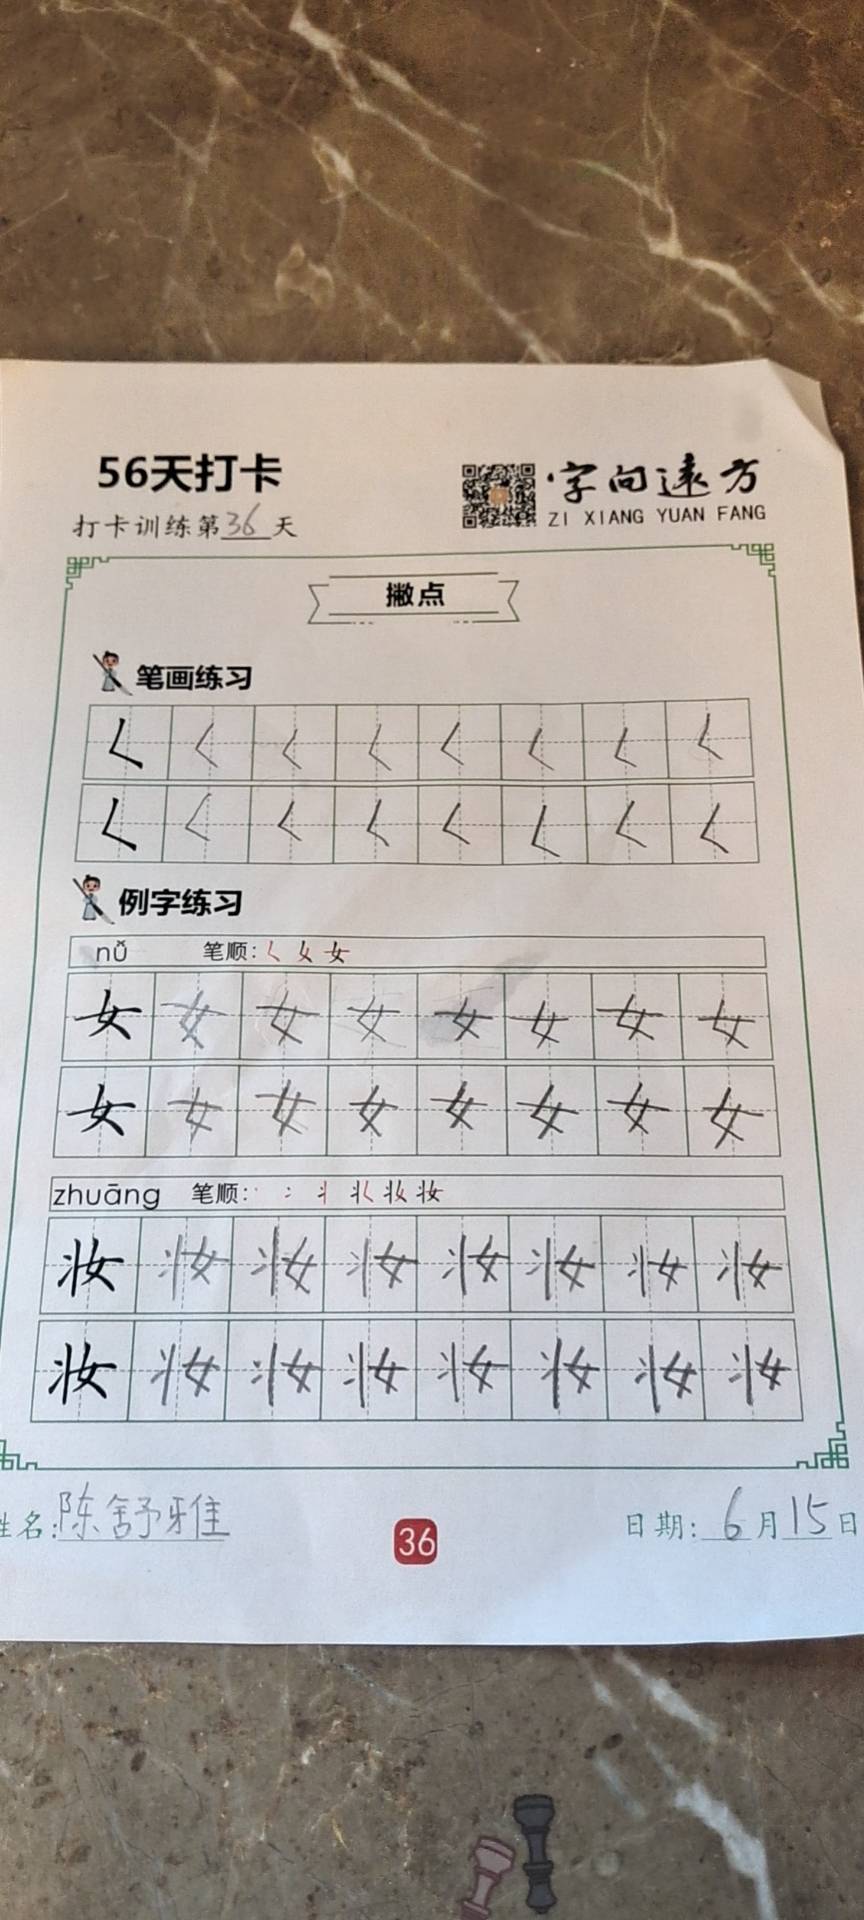 56天打卡
字向远方
打卡训练第36天
ZI XIANG YUAN FANG
撇点
笔画练习
𡿨 𡿨 𡿨 𡿨 𡿨 𡿨 𡿨 𡿨
𡿨 𡿨 𡿨 𡿨 𡿨 𡿨 𡿨 𡿨
例字练习
nǚ 笔顺:𡿨 女
女 女 女 女 女 女 女 女
女 女 女 女 女 女 女 女
zhuāng 笔顺: 丬 妆
妆 妆 妆 妆 妆 妆 妆 妆
妆 妆 妆 妆 妆 妆 妆 妆
姓名:陈舒雅
36
日期:6月15日